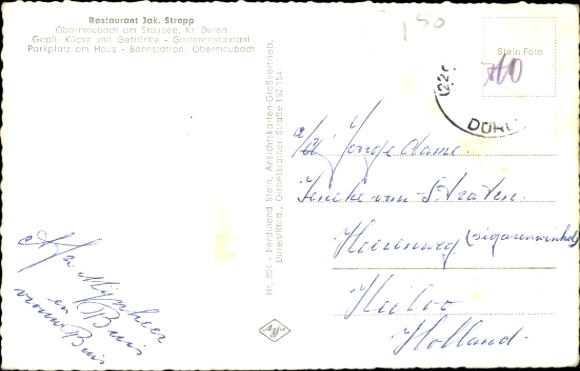 Restaurant Jak. Strepp
Obermaubach am Stausee, Kr. Düren
Gepfl. Küche und Getränke - Gartenrestaurant
Parkplatz am Haus - Bahnstation: Obermaubach
150
Stein Foto
710
DÜR
Nr. 801 - Ferdinand Stein, Ansichtskarten-Großvertrieb,
Düren/Rhld., Girbelsrather Straße 152-154
Jonge dame
van Straten.
Heerenweg. (sigarenwinkel)
Heiloo
Holland.
Afz. Mijnheer
en Buis
vrouw Buis